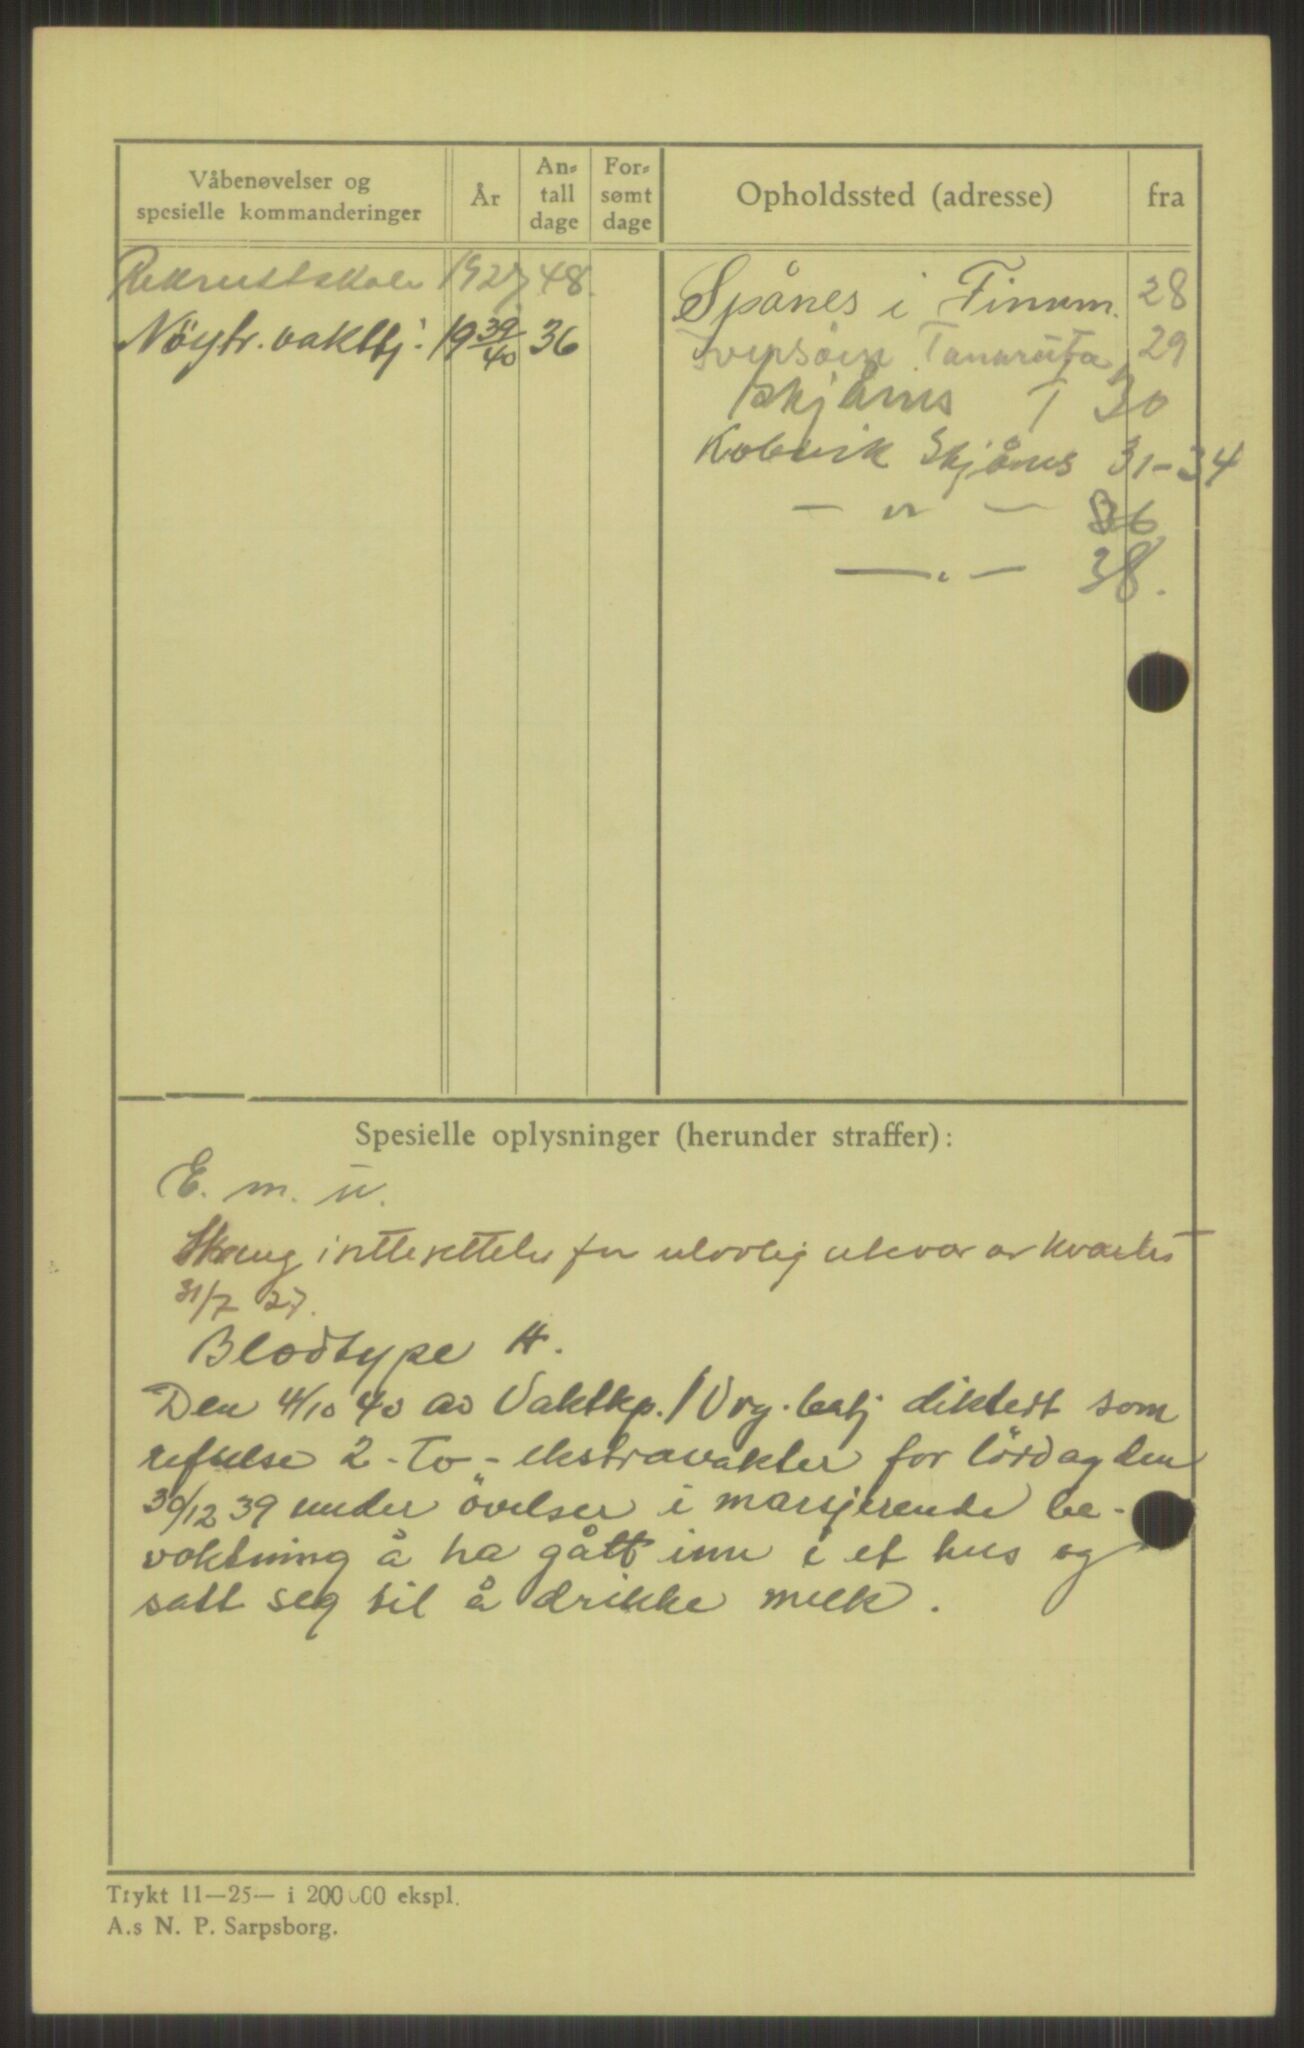 Våbenøvelser og
spesielle kommanderinger
År
An-
tall
dage
For-
sømt
dage
Opholdssted (adresse)
fra
Rekruttskole 1927 48.
Nøytr. vakttj. 19 39/40 36
Spånes i Finnm. 28
Tana 29
Skjånes T 30
Kobvik Skjånes 31-34
— " — 36
— " — 38.
Spesielle oplysninger (herunder straffer):
E. m. u.
for ulovlig av kvarter
31/7 27.
Blodtype A.
Den 4/10 40 av Vaktkp./Vrg. batj diktert som
refselse 2 - To - ekstravakter for lördag den
30/12 39 under övelser i marsjerende be-
voktning å ha gått inn i et hus og
satt seg til å drikke melk.
Trykt 11—25— i 200 000 ekspl.
A.s N. P. Sarpsborg.